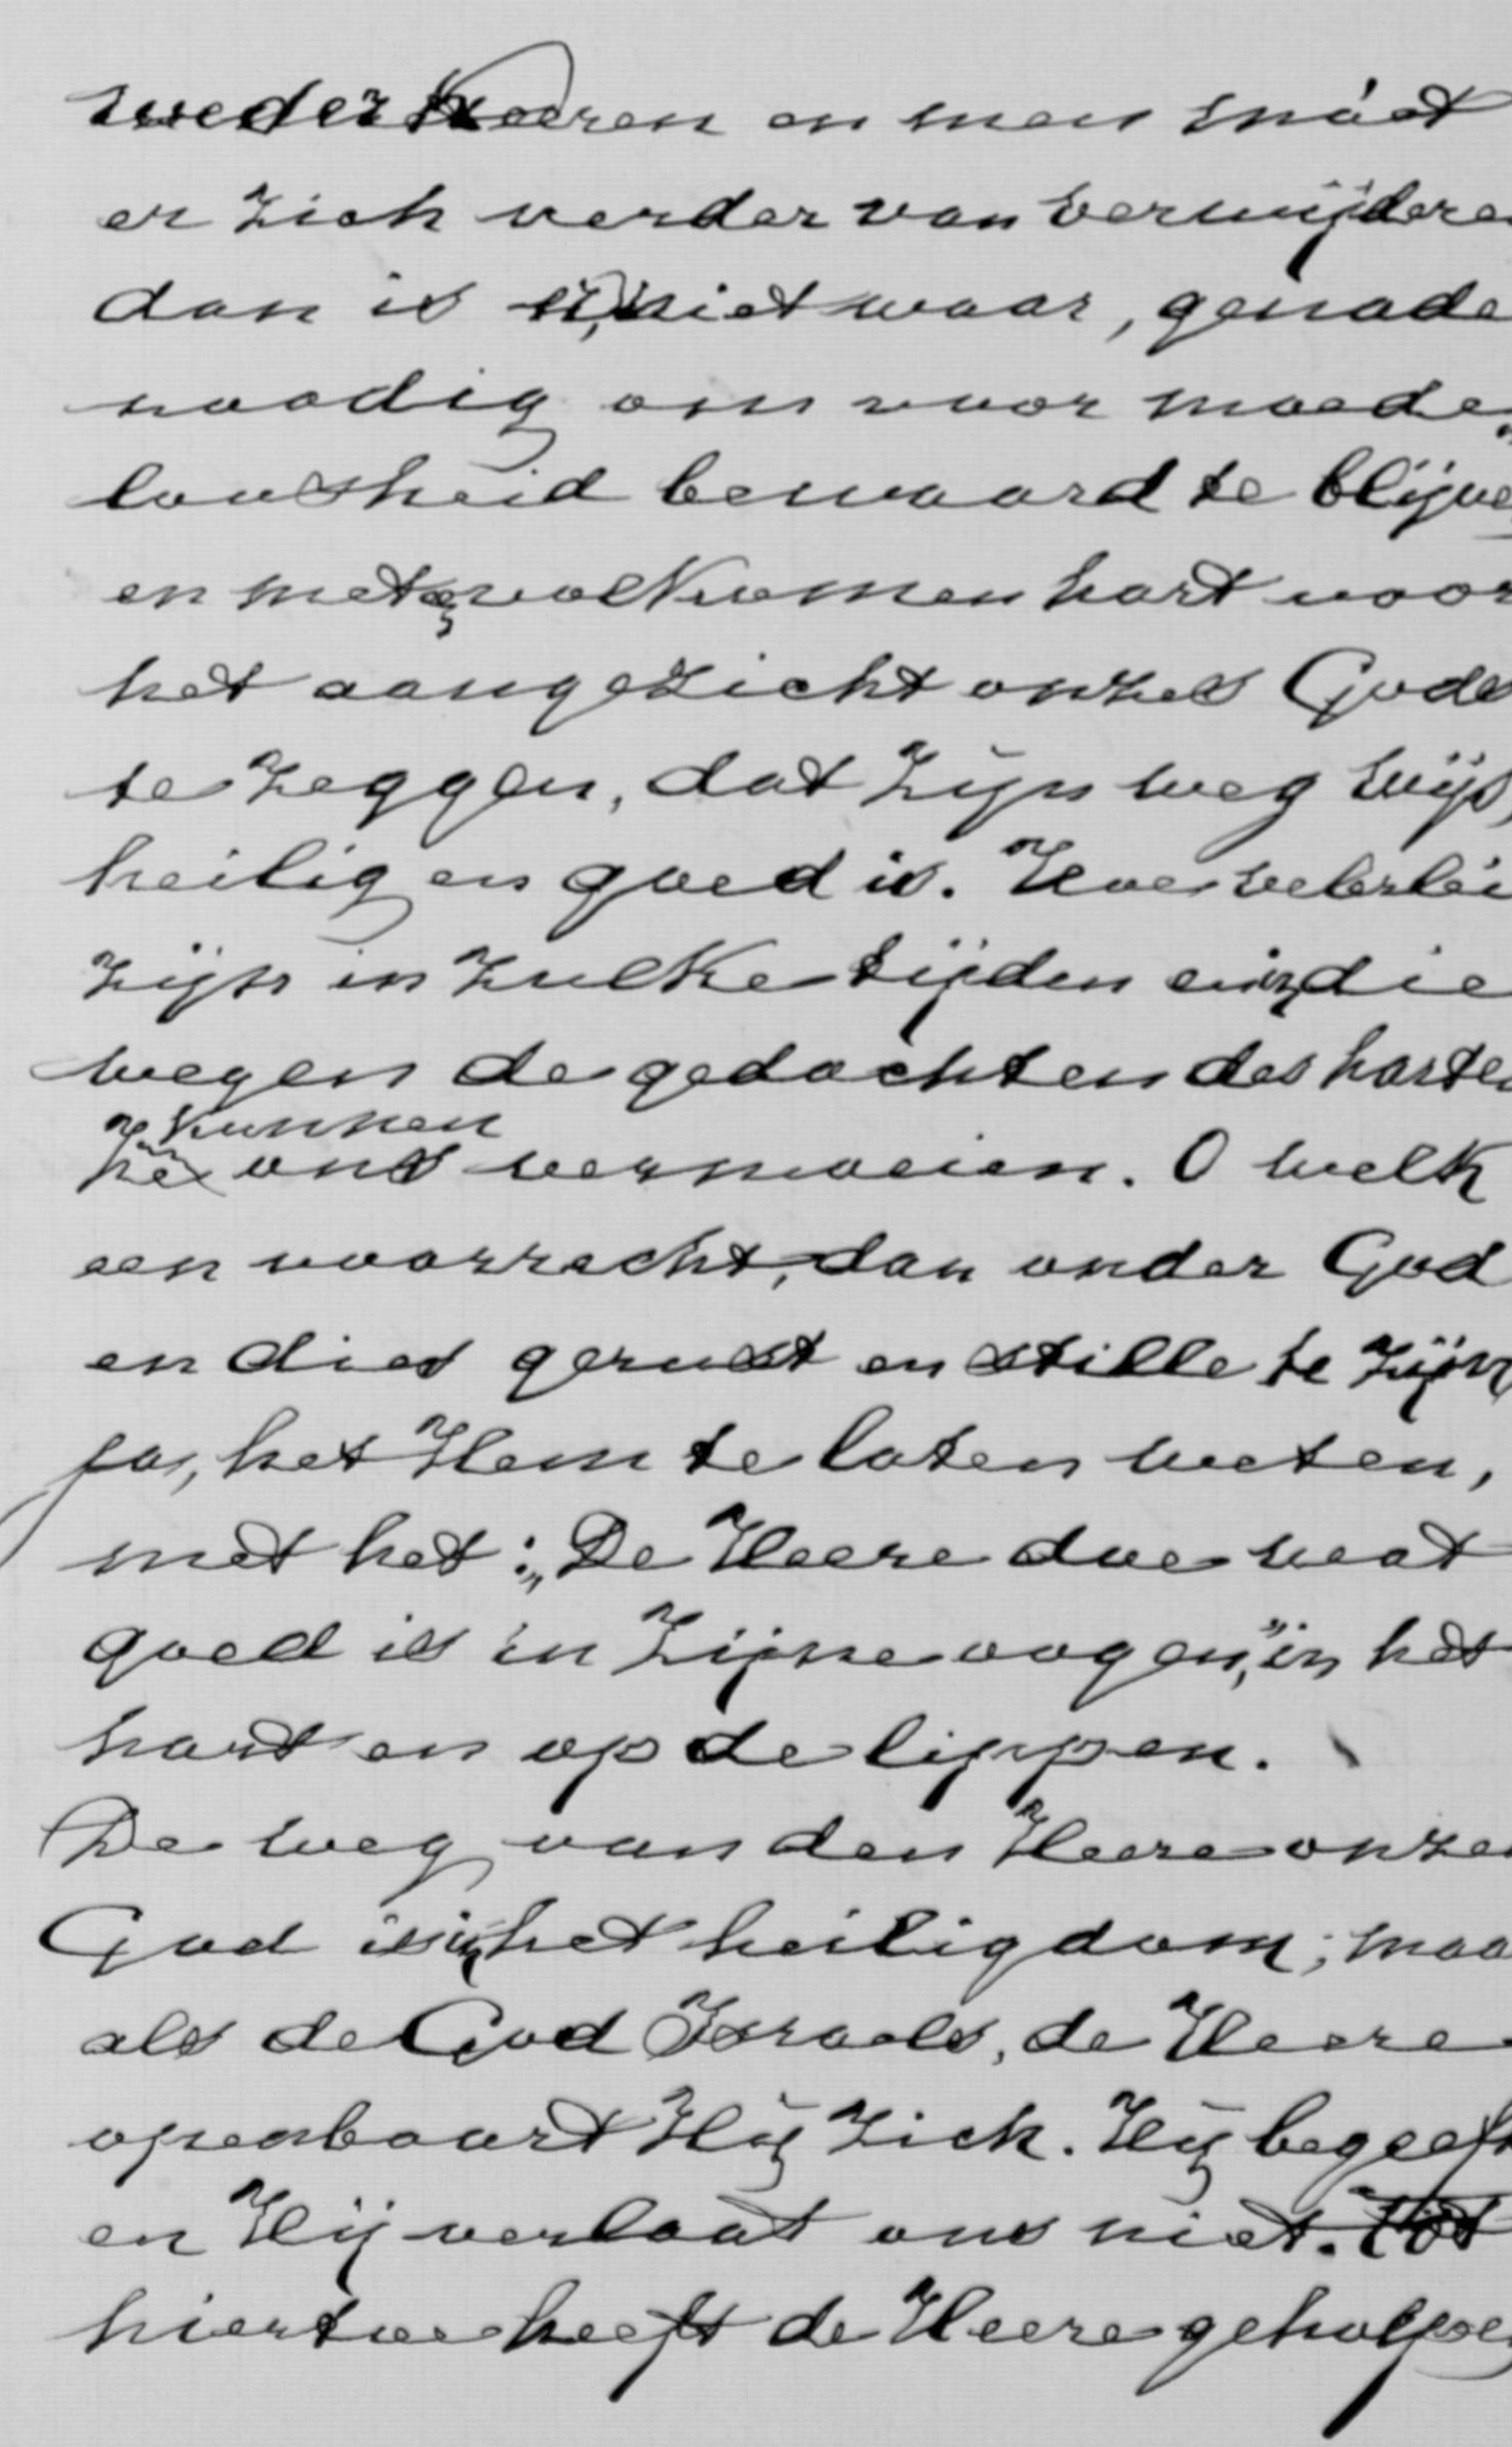 wederkeeren en men móet
er zich verder van verwijdere
dan is er, niet waar, genade
noodig om voor moede„
loosheid bewaard te blijve
en met een volkomen hart voor
het aangezicht onzes Gods
te zeggen, dat Zijn weg wijs,
heilig en goed is. Hoevelerlei
zijn in zulke tijden en in die
wegen de gedachten des harten
kunnen
ze ons vermoeien. O welk
een voorrecht, dan onder God
en dies gerust en stille te zijn,
ja, het Hem te laten weten,
met het: „De Heere doe wat
goed is in Zijne oogen," in het
hart en op de lippen.
De weg van den Heere onze
God is in het heiligdom; maa
als de God Israels, de Heere
openbaart Hij Zich. Hij begeeft
en Hij verlaat ons niet. Tot
hiertoe heeft de Heere geholpe